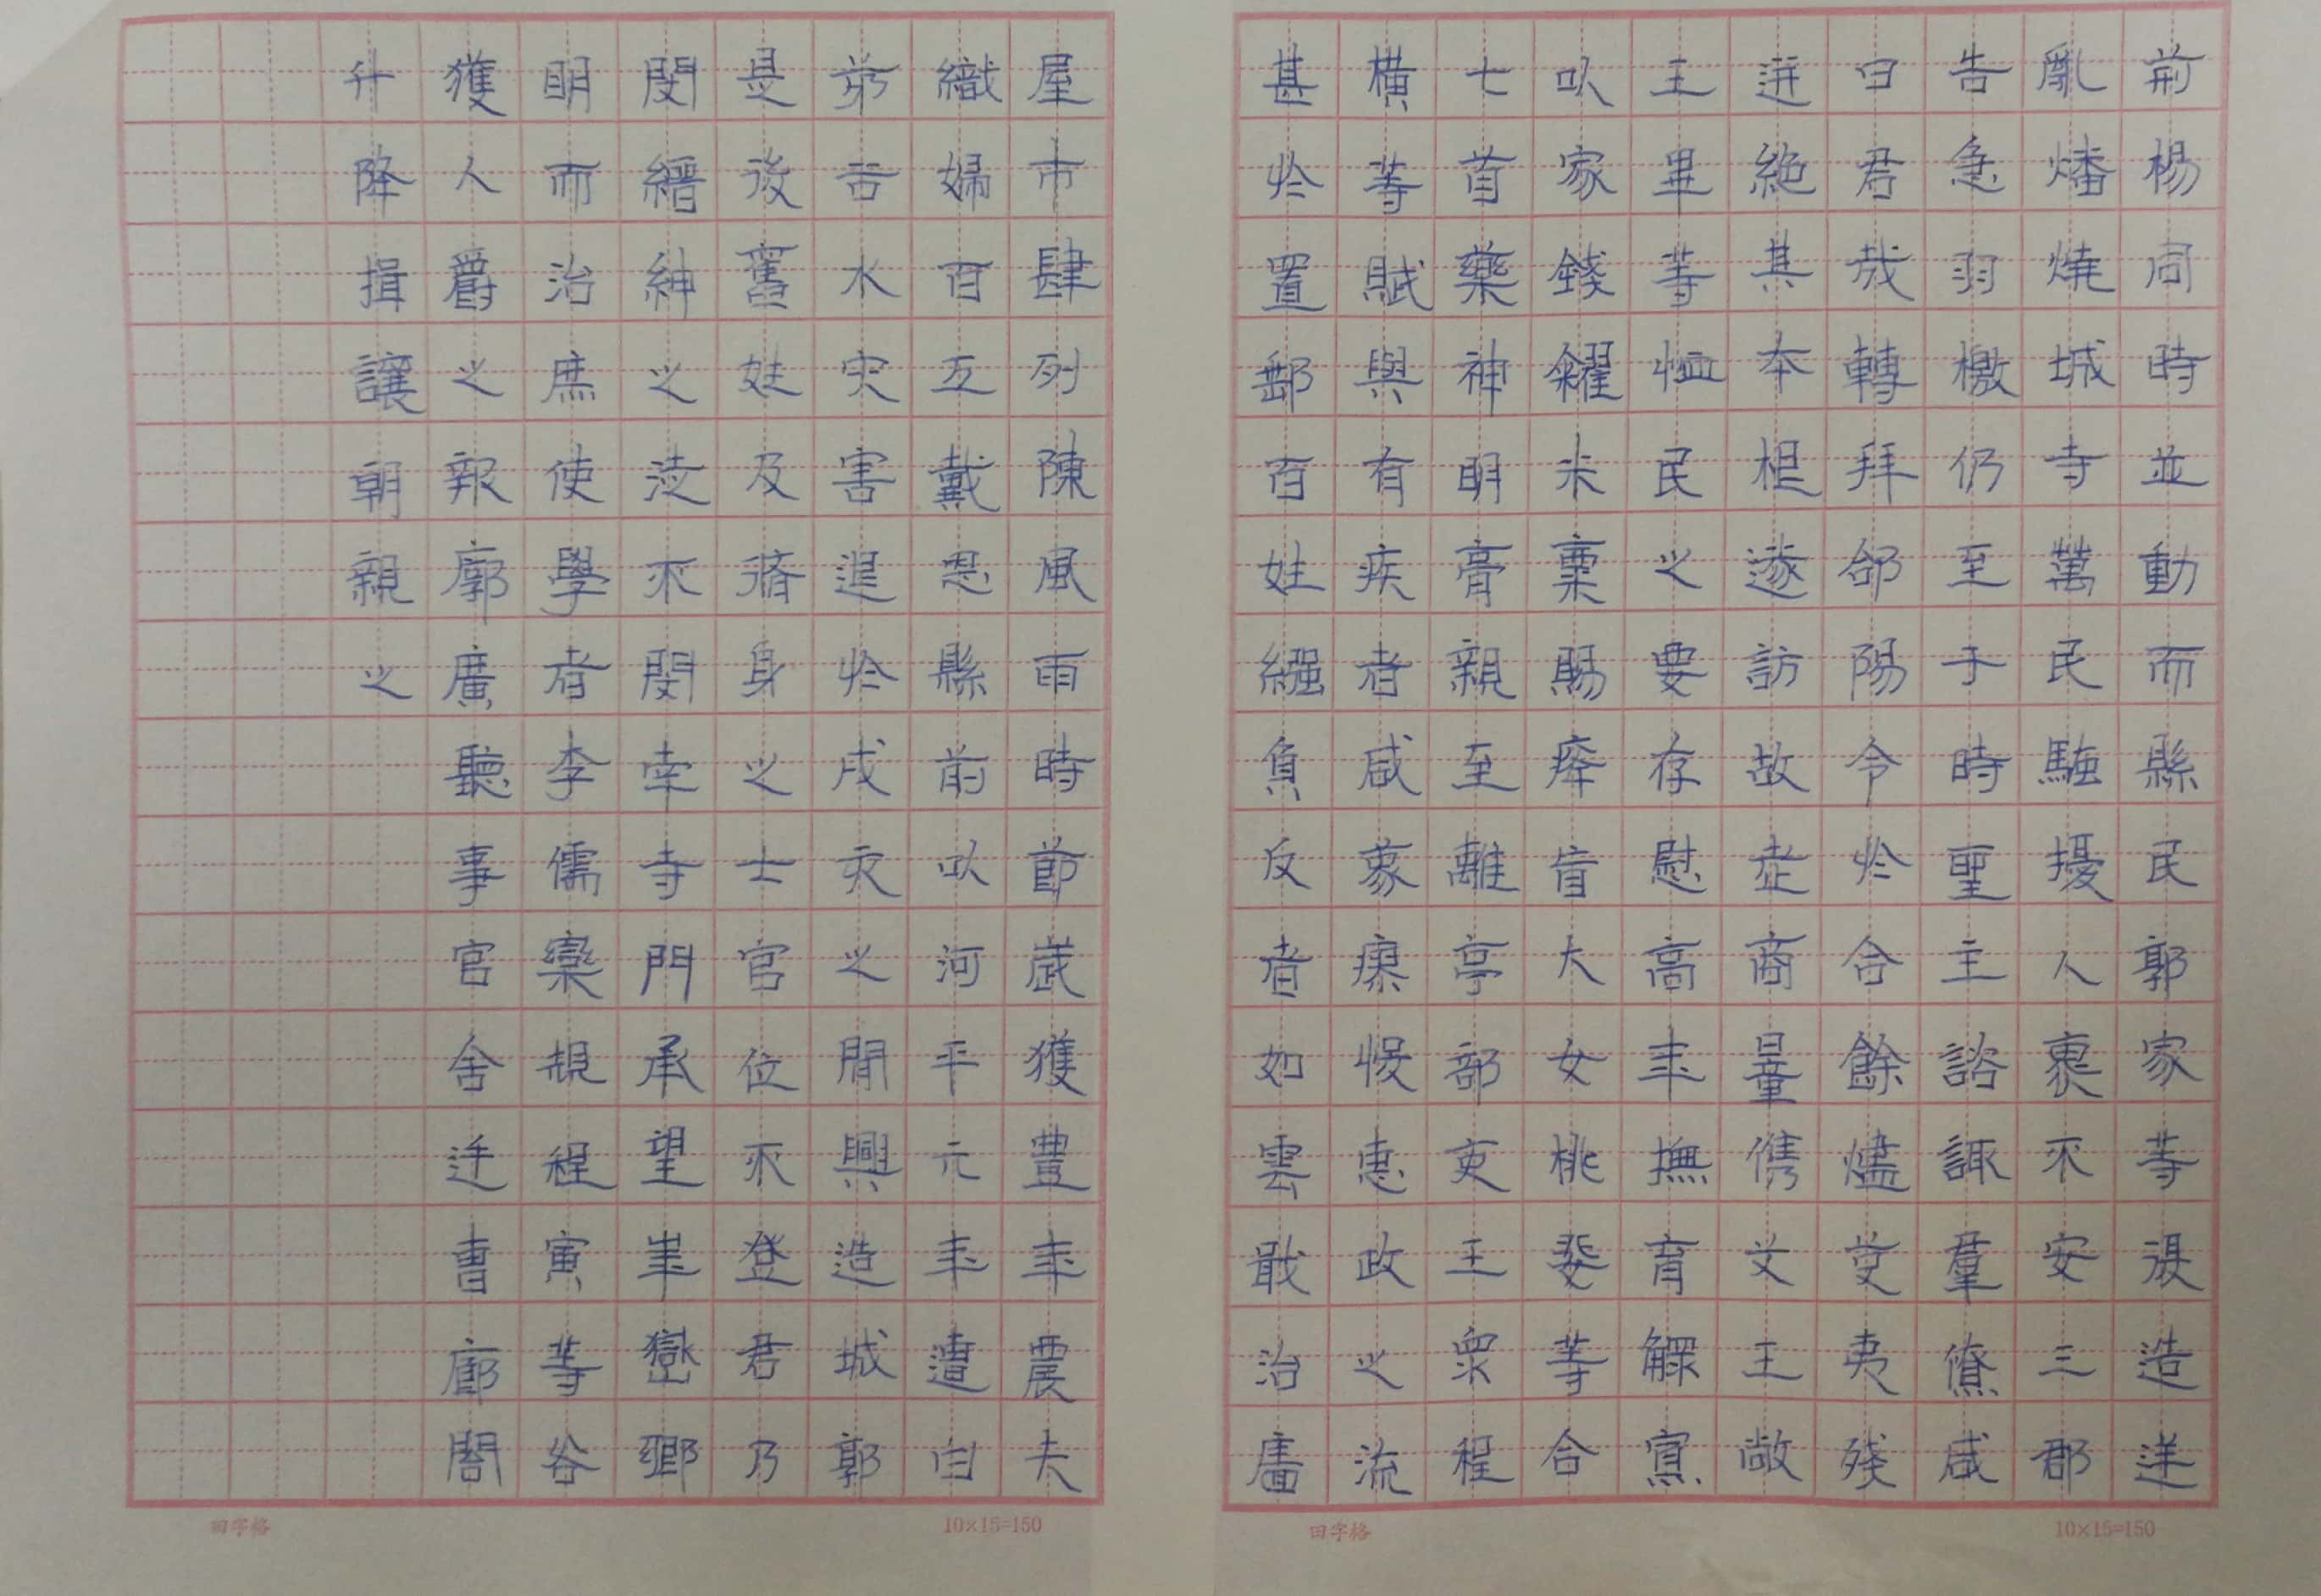 荊楊同時並動而縣民郭家等復造逆
亂燔燒城寺萬民騷擾人裹不安三郡
告急羽檄仍至于時聖主諮諏羣僚咸
曰君哉轉拜郃陽令收合餘燼芟夷殘
迸絕其本根遂訪故老商量儁艾王敞
王畢等恤民之要存慰高年撫育鰥寡
以家錢糴米粟賜癃盲大女桃婓等合
七首藥神明膏親至離亭部吏王宰程
橫等賦與有疾者咸蒙瘳悛惠政之流
甚於置郵百姓繦負反者如雲戢治廧
屋市肆列陳風雨時節歲獲豐年農夫
織婦百工戴恩縣前以河平元年遭白
茅谷水災害退於戌亥之間興造城郭
是後舊姓及脩身之士官位不登君乃
閔縉紳之徒不閔南寺門承望華嶽鄉
明而治庶使學者李儒欒規程寅等各
獲人爵之報廓廣聽事官舍廷曹廊閤
升降揖讓朝覲之
田字格
10×15=150
田字格
10×15=150